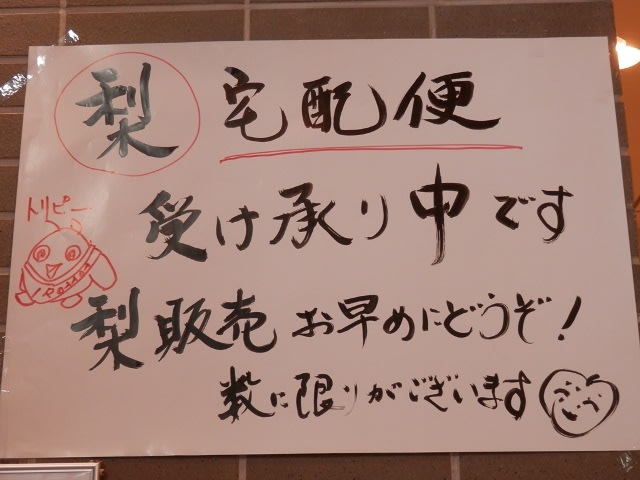 梨 宅配便
受け承り中です
トリピー
梨販売 お早めにどうぞ!
数に限りがございます